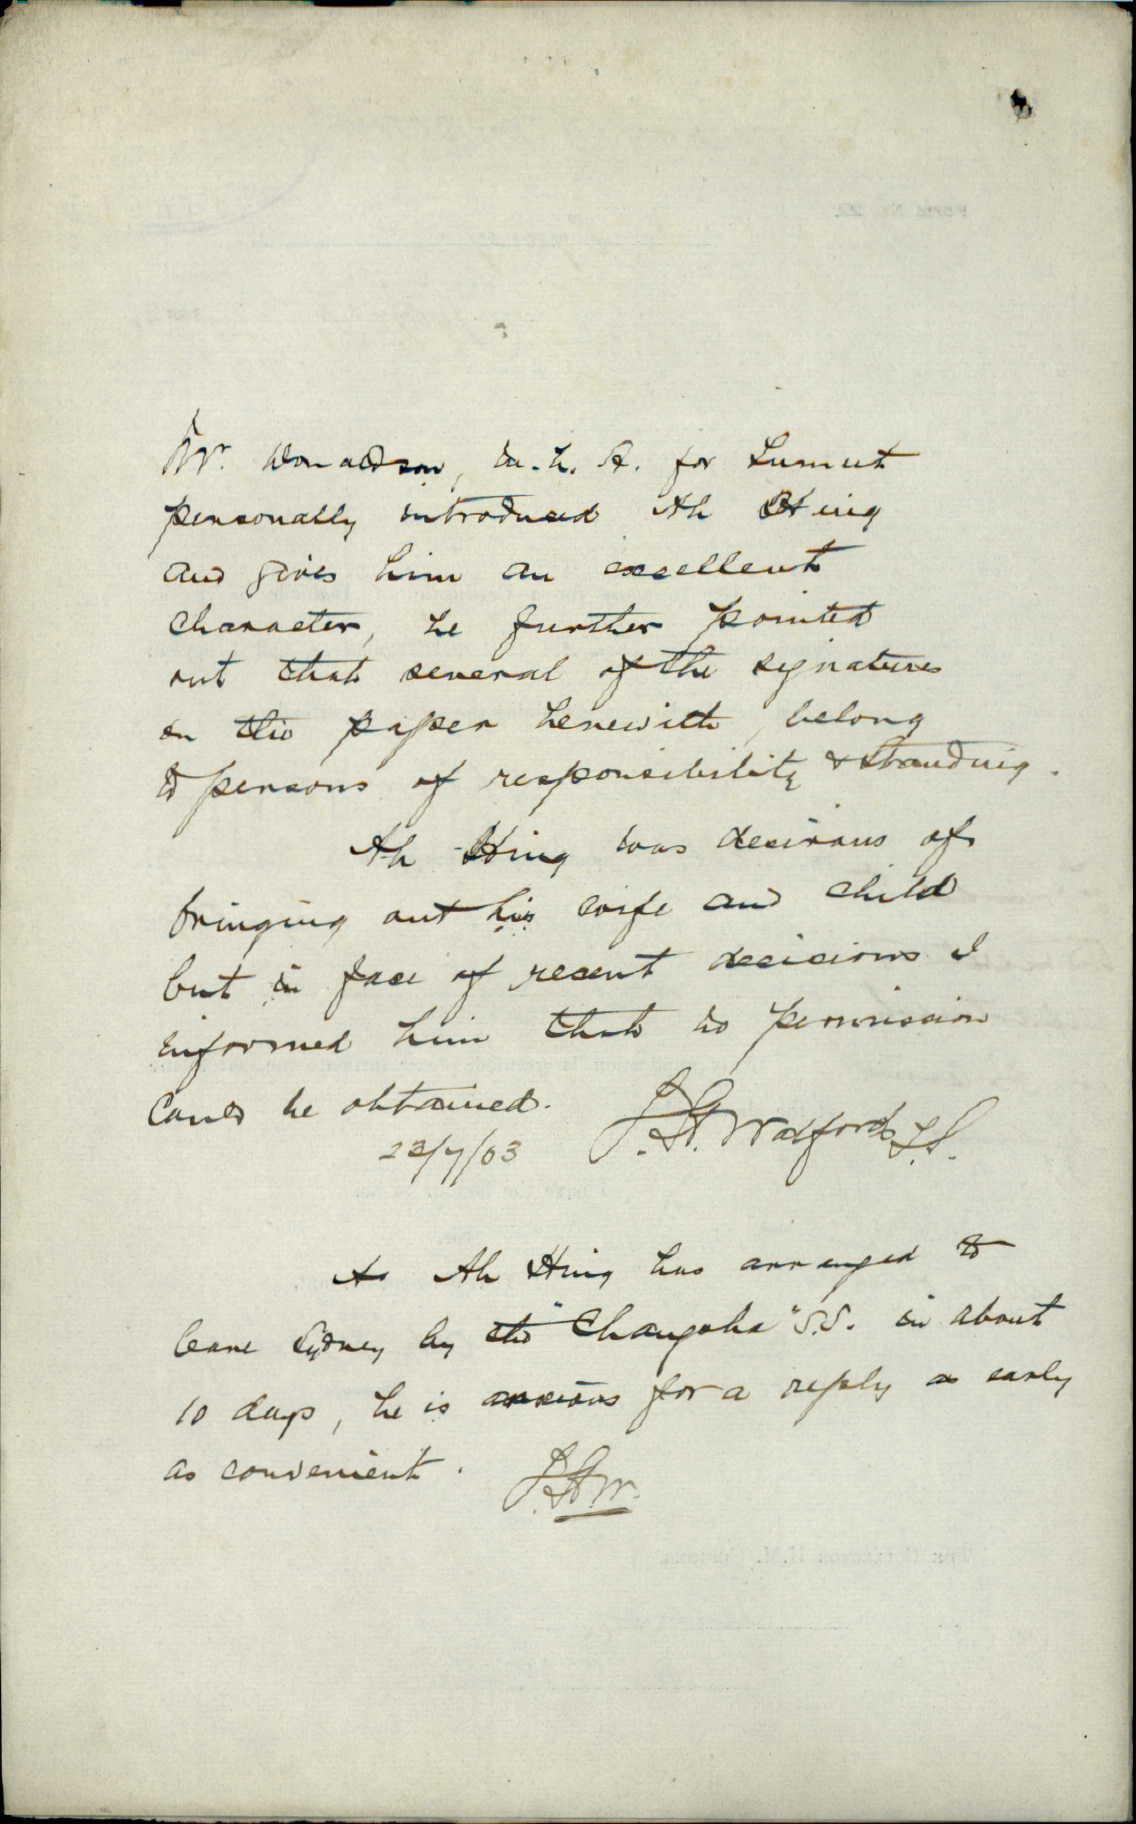 Mr. Donaldson, M.L.A. for Tumut
personally introduced Ah Hing
and gives him an excellent
character, he further pointed
out that several of the signatures
on the paper herewith, belong
to persons of responsibility & standing.
Ah Hing was desirous of
bringing out his wife and child
but in face of recent decisions I
informed him that no permission
could be obtained.
23/7/03
As Ah Hing has arranged to
leave Sydney by the "Changsha" S.S. in about
10 days, he is anxious for a reply as early
as convenient.